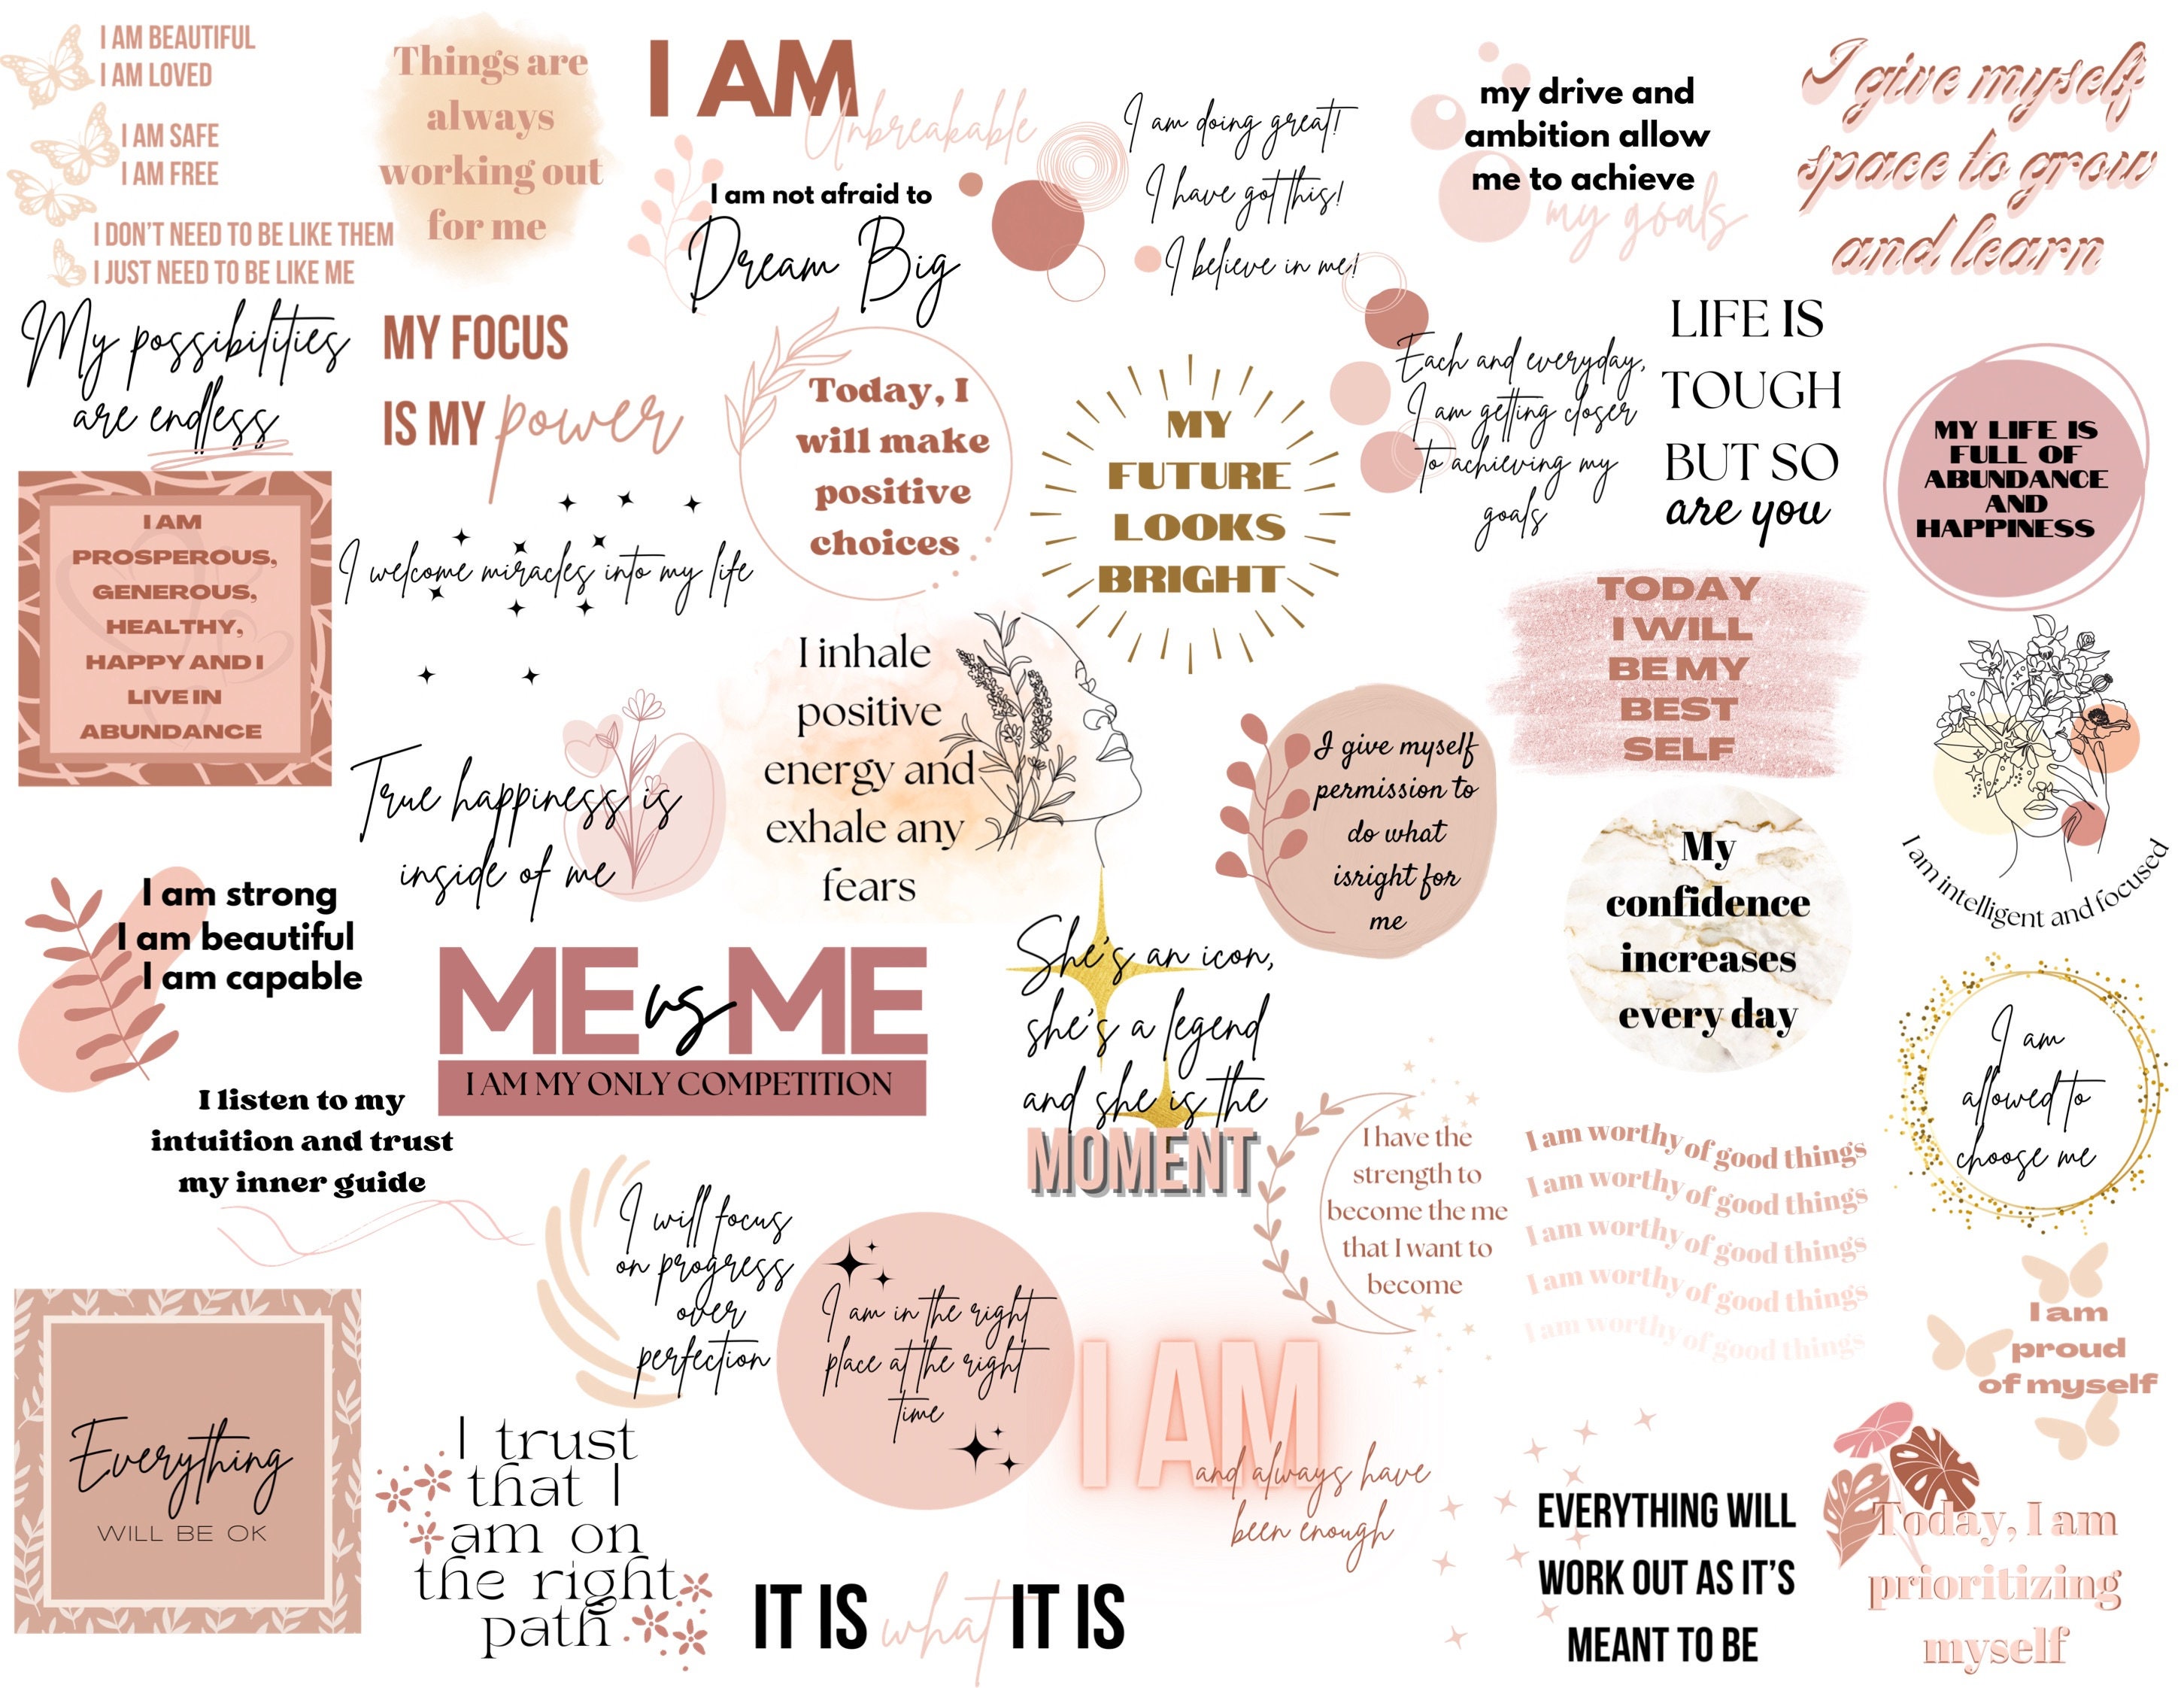 I AM BEAUTIFUL
I AM LOVED
I AM SAFE
I AM FREE
I DON'T NEED TO BE LIKE THEM
I JUST NEED TO BE LIKE ME
Things are
always
working out
for me
I AM
Unbreakable
I am not afraid to
Dream Big
I am doing great!
I have got this!
I believe in me!
my drive and
ambition allow
me to achieve
my goals
I give myself
space to grow
and learn
My possibilities
are endless
MY FOCUS
IS MY power
Today, I
will make
positive
choices
MY
FUTURE
LOOKS
BRIGHT
Each and everyday,
I am getting closer
to achieving my
goals
LIFE IS
TOUGH
BUT SO
are you
MY LIFE IS
FULL OF
ABUNDANCE
AND
HAPPINESS
I AM
PROSPEROUS,
GENEROUS,
HEALTHY,
HAPPY AND I
LIVE IN
ABUNDANCE
I welcome miracles into my life
True happiness is
inside of me
I inhale
positive
energy and
exhale any
fears
I give myself
permission to
do what
isright for
me
TODAY
I WILL
BE MY
BEST
SELF
My
confidence
increases
every day
I am intelligent and focused
I am strong
I am beautiful
I am capable
ME vs ME
I AM MY ONLY COMPETITION
She's an icon,
she's a legend
and she is the
MOMENT
I am
allowed to
choose me
I listen to my
intuition and trust
my inner guide
I will focus
on progress
over
perfection
I am in the right
place at the right
time
I have the
strength to
become the me
that I want to
become
I am worthy of good things
I am worthy of good things
I am worthy of good things
I am worthy of good things
I am worthy of good things
I am
proud
of myself
Everything
WILL BE OK
I trust
that I
am on
the right
path
I AM
and always have
been enough
IT IS what IT IS
EVERYTHING WILL
WORK OUT AS IT'S
MEANT TO BE
Today, I am
prioritizing
myself